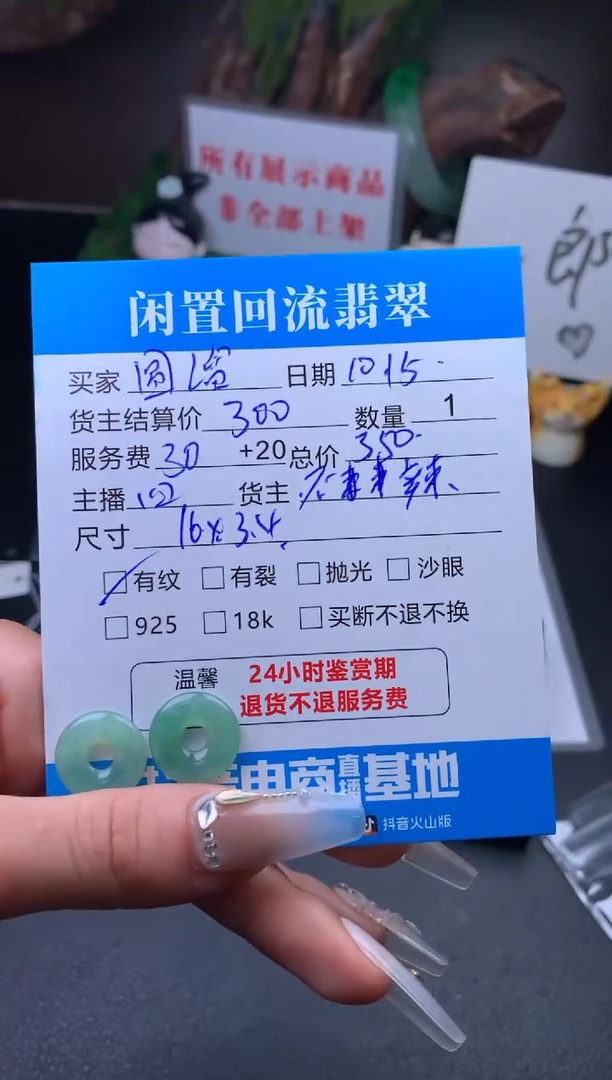 所有展示商品
非全部上架
郎
闲置回流翡翠
买家 圆 日期 10 15.
货主结算价 300 数量 1
服务费 30 +20 总价 350.
主播 货主
尺寸 16x3.4
有纹 有裂 抛光 沙眼
925 18k 买断不退不换
温馨 24小时鉴赏期
退货不退服务费
电商直播基地
抖音火山版